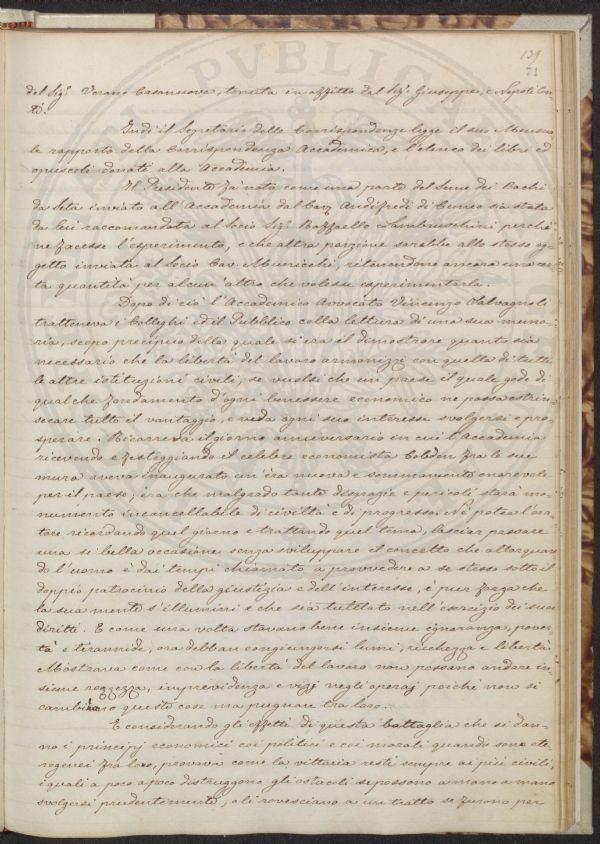 139
71
del Sig.r Verano Casanuova, tenuta in affitto dal Sig.r Giuseppe, e Nepoti Con-
ti.
Indi il Segretario delle Corrispondenze legge il suo Mensua-
le rapporto della Corrispondenza Accademica, e l'elenco dei libri ed
opuscoli donati alla Accademia.
Il Presidente fà noto come una parte del Seme dei Bachi
da Seta inviato all'Accademia dal Cav. Audifredi di Cuneo sia stata
da lui raccomandata al Socio Sig.r Raffaello Lambruschini perchè
ne facesse l'esperimento, e che altra porzione sarebbe allo stesso og-
getto inviata al Socio Cav. ritenendone ancora una cer-
ta quantità per alcun'altro che volesse esperimentarla.
Dopo di ciò l'Accademico Avvocato Vincenzo Salvagnoli
tratteneva i Colleghi ed il Pubblico colla lettura di una sua memo-
ria, scopo precipuo della quale si era il dimostrare quanto sia
necessario che la libertà del lavoro armonizzi con quella di tutte
le altre istituzioni civili, se vuolsi che un paese il quale gode di
qualche fondamento d'ogni benessere economico ne possa estrin-
secare tutto il vantaggio, e veda ogni suo interesse svolgersi e pro-
sperare. Ricorreva il giorno anniversario in cui l'Accademia
ricevendo e festeggiando il celebre economista Cobden fra le sue
mura aveva inaugurato un'èra nuova e sommamente onorevole
per il paese; èra che malgrado tante disgrazie e pericoli starà mo-
numento incancellabile di civiltà e di progresso. Nè potea l'ora-
tore ricordando quel giorno e trattando quel tema, lasciar passare
una sì bella occasione senza sviluppare il concetto che allorquan-
do l'uomo è dai tempi chiamato a provvedere a se stesso sotto il
doppio patrocinio della giustizia e dell'interesse, è pur forza che
la sua mente s'illumini e che sia tutelato nell'esercizio dei suoi
diritti. E come una volta stavano bene insieme ignoranza, pover-
tà e tirannide, ora debban congiungersi lumi, ricchezza e libertà.
Mostrava come con la libertà del lavoro non possano andare in-
sieme rozzezza, imprevidenza e vizi negli operaj poichè non si
cambiano queste cose ma pugnan tra loro.
E considerando gli effetti di questa battaglia che si dan-
no i principj economici coi politici e coi morali quando sono ete-
rogenei fra loro, provava come la vittoria resti sempre ai più civili,
i quali a poco a poco distruggono gli ostacoli se possono a mano a mano
svolgersi prudentemente, o li rovesciano a un tratto se furono per